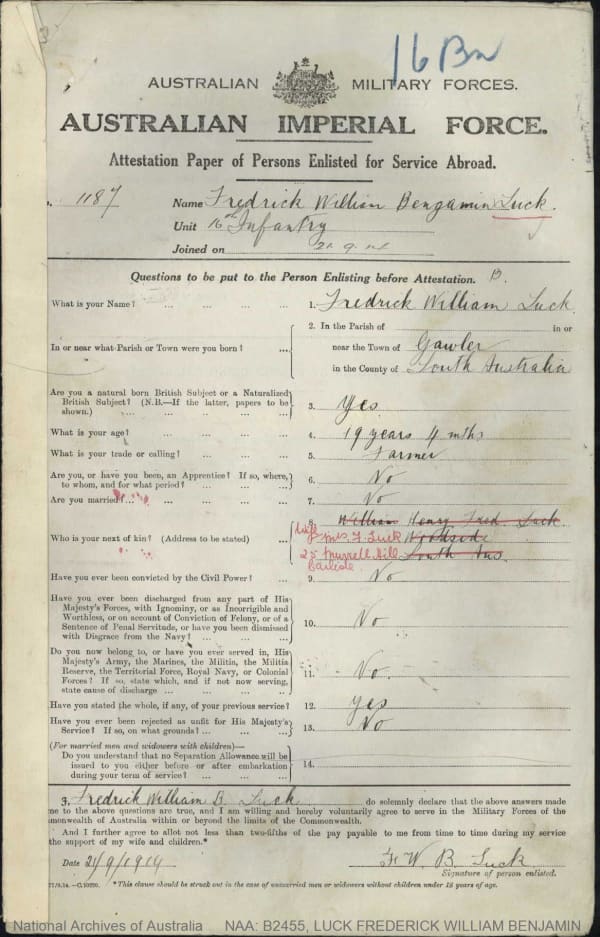 16 Bn
AUSTRALIAN MILITARY FORCES.
AUSTRALIAN IMPERIAL FORCE.
Attestation Paper of Persons Enlisted for Service Abroad.
1187 Name Fredrick William Bengamin Luck.
Unit 16th Infantry
Joined on 21.9.14
Questions to be put to the Person Enlisting before Attestation. B.
What is your Name? ... ... ... 1. Fredrick William Luck
In or near what Parish or Town were you born? ... 2. In the Parish of in or
near the Town of Gawler
in the County of South Australia
Are you a natural born British Subject or a Naturalized
British Subject? (N.B.—If the latter, papers to be
shown.) ... ... ... ... 3. Yes
What is your age? ... ... ... ... 4. 19 years 4 mths
What is your trade or calling? ... ... ... 5. Farmer
Are you, or have you been, an Apprentice? If so, where,
to whom, and for what period? ... ... ... 6. No
Are you married? ... ... ... ... 7. No
8. William Henry Fred Luck
Who is your next of kin? (Address to be stated) ... Wife Mrs. F. Luck Woodside
25 Murrell Hill South Aus.
Carlisle
Have you ever been convicted by the Civil Power? ... 9. No
Have you ever been discharged from any part of His
Majesty's Forces, with Ignominy, or as Incorrigible and
Worthless, or on account of Conviction of Felony, or of a
Sentence of Penal Servitude, or have you been dismissed
with Disgrace from the Navy? ... ... ... 10. No
Do you now belong to, or have you ever served in, His
Majesty's Army, the Marines, the Militia, the Militia
Reserve, the Territorial Force, Royal Navy, or Colonial
Forces? If so, state which, and if not now serving,
state cause of discharge ... ... ... ... 11. No.
Have you stated the whole, if any, of your previous service? 12. yes
Have you ever been rejected as unfit for His Majesty's
Service? If so, on what grounds? ... ... ... 13. No
(For married men and widowers with children)—
Do you understand that no Separation Allowance will be
issued to you either before or after embarkation
during your term of service? ... ... ... 14.
I, Fredrick William B. Luck do solemnly declare that the above answers made
me to the above questions are true, and I am willing and hereby voluntarily agree to serve in the Military Forces of the
mmonwealth of Australia within or beyond the limits of the Commonwealth.
And I further agree to allot not less than two-fifths of the pay payable to me from time to time during my service
the support of my wife and children.*
Date 21/9/1914 F. W. B. Luck
Signature of person enlisted.
*This clause should be struck out in the case of unmarried men or widowers without children under 18 years of age.
National Archives of Australia NAA: B2455, LUCK FREDERICK WILLIAM BENJAMIN